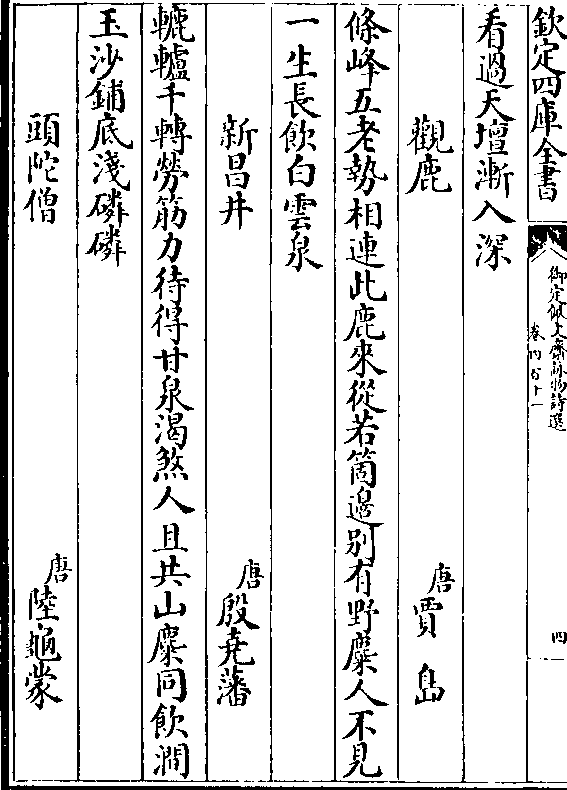 欽定四庫全書
御定佩文齋詠物詩選
卷四百十一
四
看過天壇漸入深
觀鹿
唐賈島
條峰五老勢相連此鹿來從若箇邊别有野麋人不見
一生長飲白雲泉
新昌井
唐殷堯藩
轆轤千轉勞筋力待得甘泉渴煞人且共山麋同飲澗
玉沙鋪底淺磷磷
頭陀僧
唐陸龜蒙